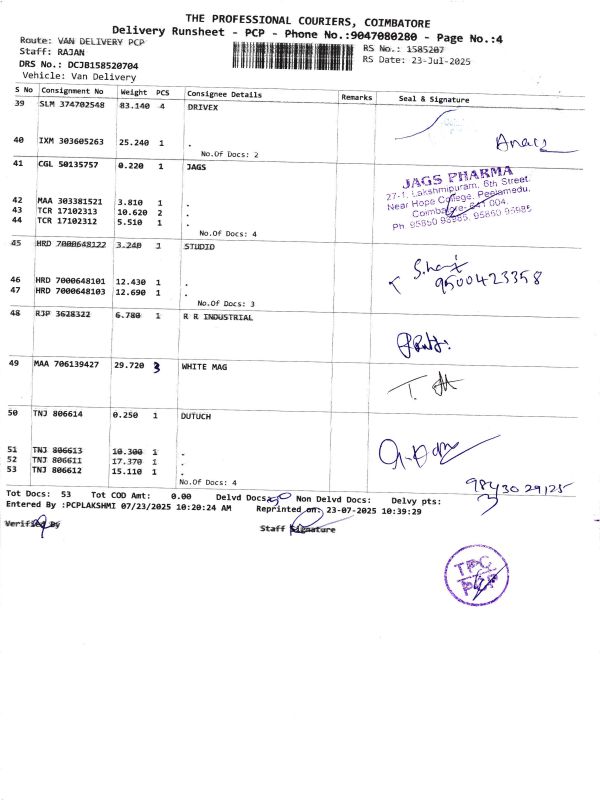 THE PROFESSIONAL COURIERS, COIMBATORE
Delivery Runsheet - PCP - Phone No.:9047080280 - Page No.:4
Route: VAN DELIVERY PCP
RS No.: 1585207
Staff: RAJAN
RS Date: 23-Jul-2025
DRS No.: DCJB158520704
Vehicle: Van Delivery
S No Consignment No Weight PCS Consignee Details Remarks Seal & Signature
39 SLM 374702548 83.140 4 DRIVEX
40 IXM 303605263 25.240 1 .
No.Of Docs: 2
41 CGL 50135757 0.220 1 JAGS
JAGS PHARMA
27-1, Lakshmipuram, 6th Street,
Near Hope College, Peelamedu,
Coimbatore- 641 004.
Ph. 95850 95985, 95850 95985
42 MAA 303381521 3.810 1 .
43 TCR 17102313 10.620 2 .
44 TCR 17102312 5.510 1 .
No.Of Docs: 4
45 HRD 7000648122 3.240 1 STUDIO
9500423358
46 HRD 7000648101 12.430 1 .
47 HRD 7000648103 12.690 1 .
No.Of Docs: 3
48 RJP 3628322 6.780 1 R R INDUSTRIAL
49 MAA 706139427 29.720 3 WHITE MAG
50 TNJ 806614 0.250 1 DUTUCH
51 TNJ 806613 10.300 1 .
52 TNJ 806611 17.370 1 .
53 TNJ 806612 15.110 1 .
No.Of Docs: 4
9843029125
Tot Docs: 53 Tot COD Amt: 0.00 Delvd Docs: 50 Non Delvd Docs: 3 Delvy pts:
Entered By :PCPLAKSHMI 07/23/2025 10:20:24 AM Reprinted on: 23-07-2025 10:39:29
Verified By Staff Signature
TPC
PCP